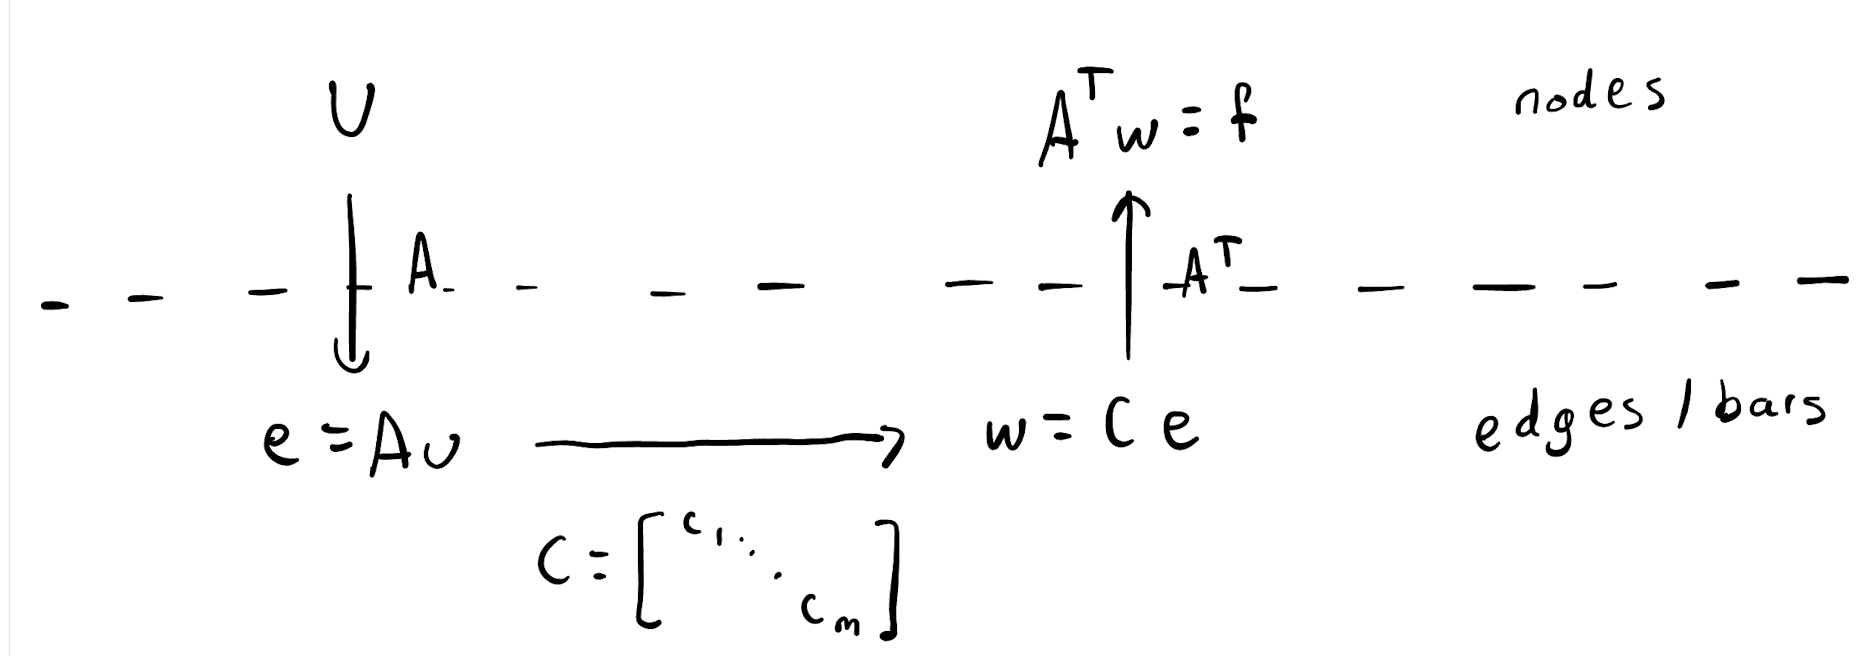 U
Aᵀw = f
nodes
A
Aᵀ
e = Au
w = C e
edges / bars
C = [c₁ ⋱ cₘ]